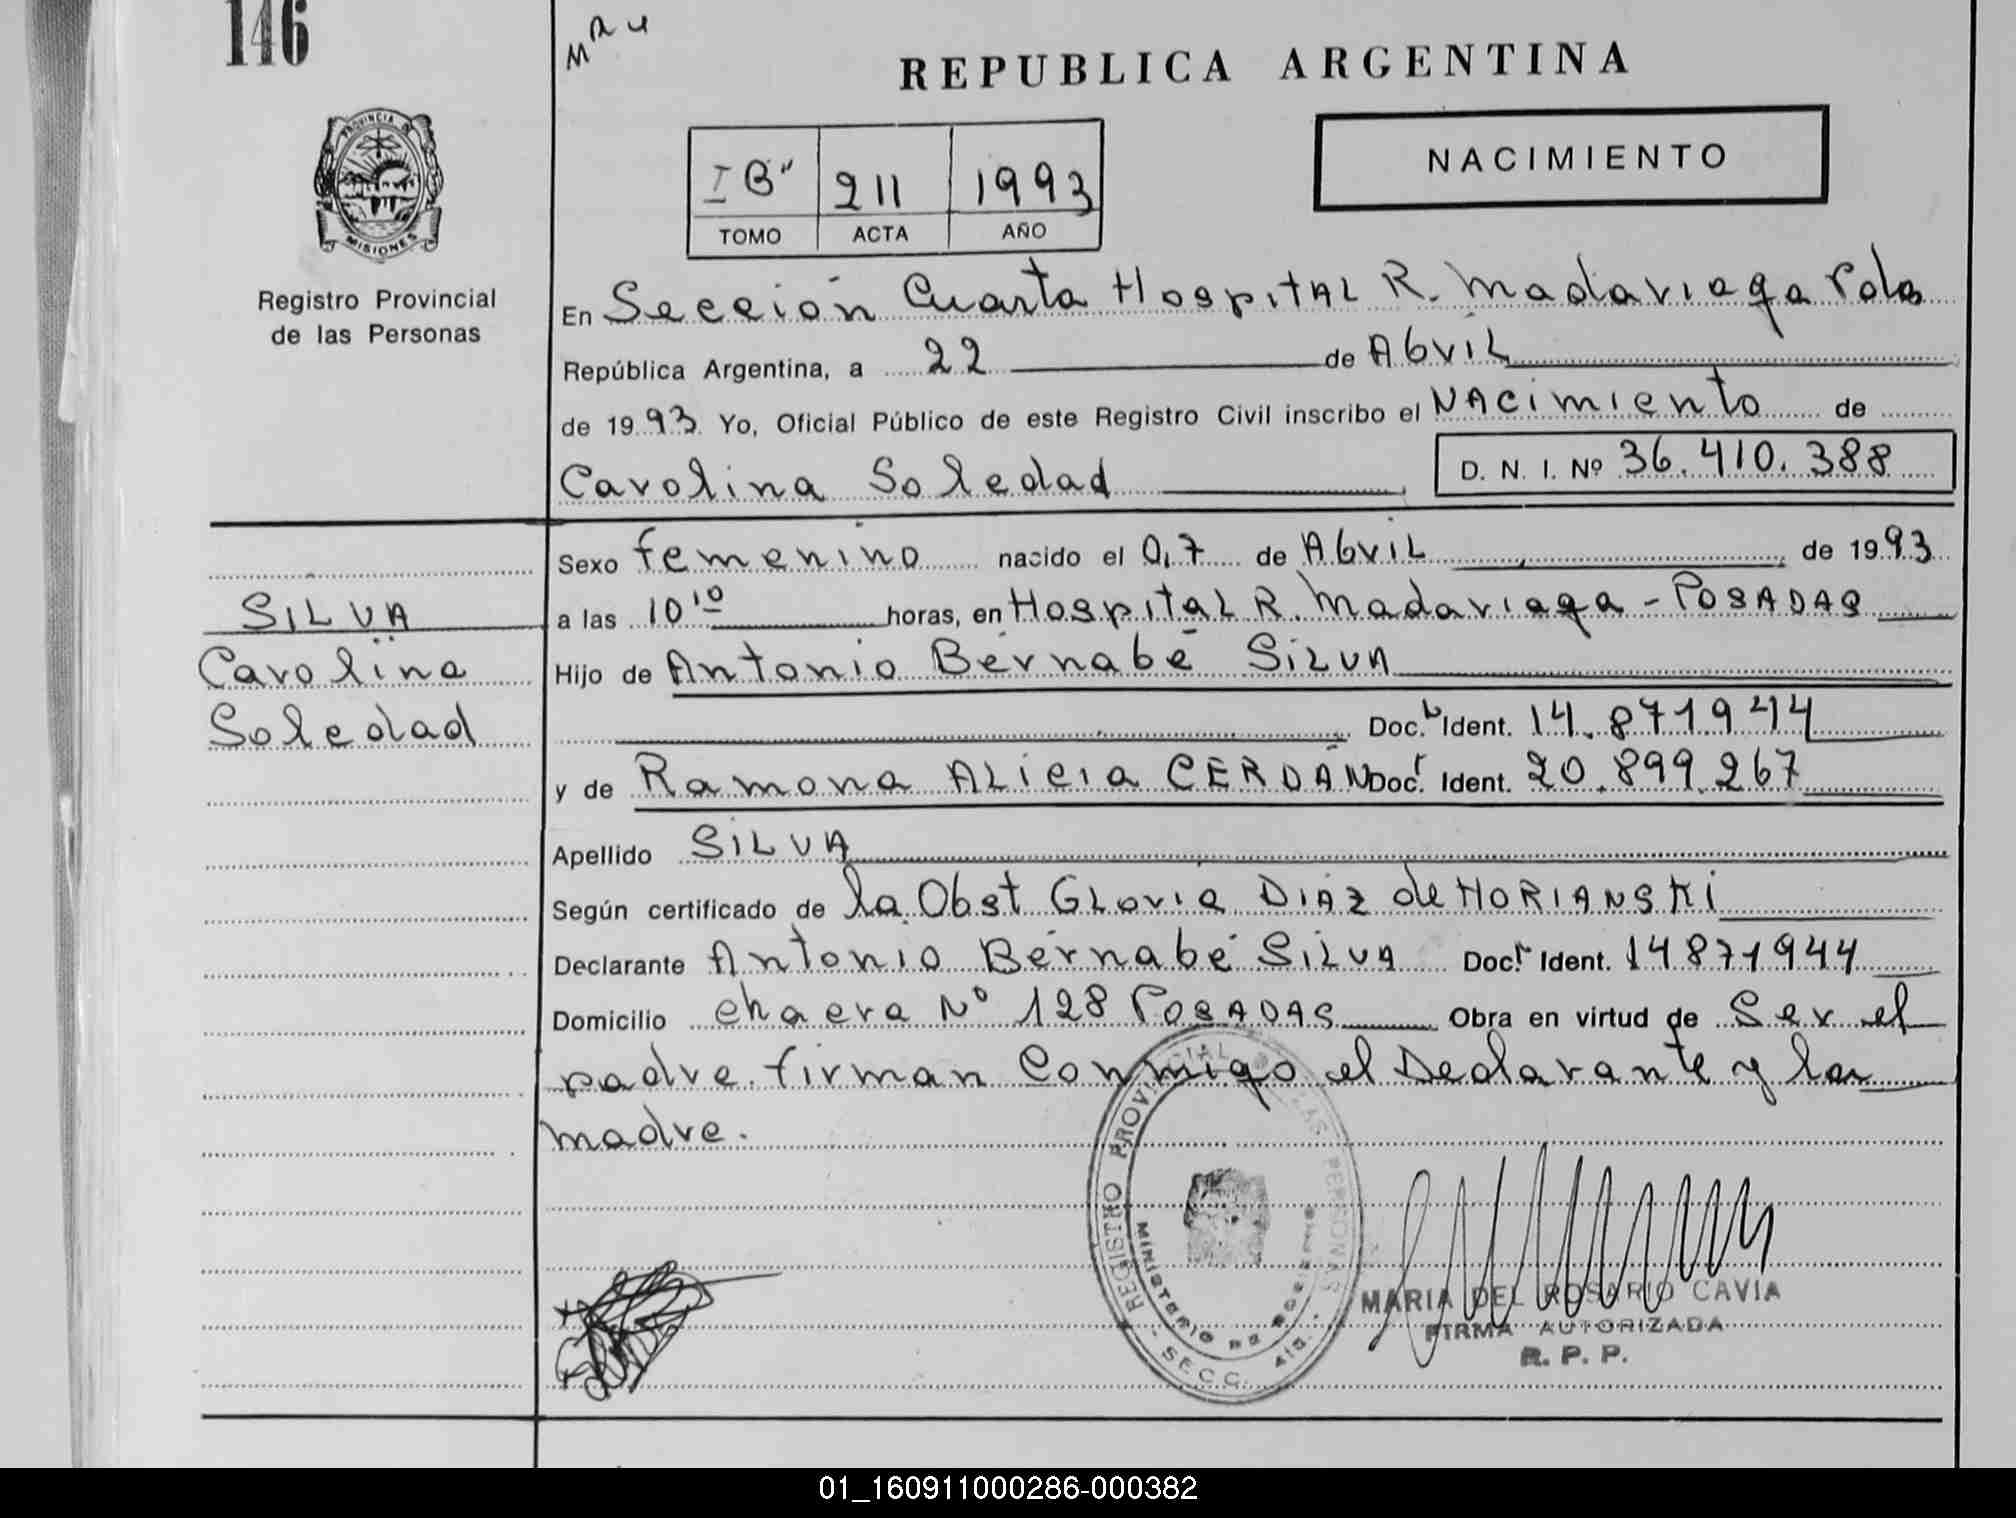 146
REPUBLICA ARGENTINA
PROVINCIA DE
MISIONES
Registro Provincial
de las Personas
I "B" 211 1993
TOMO ACTA AÑO
NACIMIENTO
En Sección Cuarta Hospital R. Madariaga Pdas
República Argentina, a 22 de Abril
de 1993 Yo, Oficial Público de este Registro Civil inscribo el Nacimiento de
Carolina Soledad D. N. I. Nº 36.410.388
Sexo femenino nacido el 07 de Abril de 1993
SILVA
a las 10,10 horas, en Hospital R. Madariaga - POSADAS
Carolina
Hijo de Antonio Bernabé SILVA
Soledad
Doc. Ident. 14.871944
y de Ramona Alicia CERDÁN Doc. Ident. 20.899.267
Apellido SILVA
Según certificado de la Obst Gloria DIAZ de HORIANSKI
Declarante Antonio Bernabé SILVA Doc. Ident. 14871944
Domicilio chacra Nº 128 POSADAS Obra en virtud de Ser el
padre. firman Conmigo el Declarante y la
madre.
REGISTRO PROVINCIAL DE LAS PERSONAS
MINISTERIO DE GOBIERNO
SECC. 4ta.
MARIA DEL ROSARIO CAVIA
FIRMA AUTORIZADA
R. P. P.
01_160911000286-000382